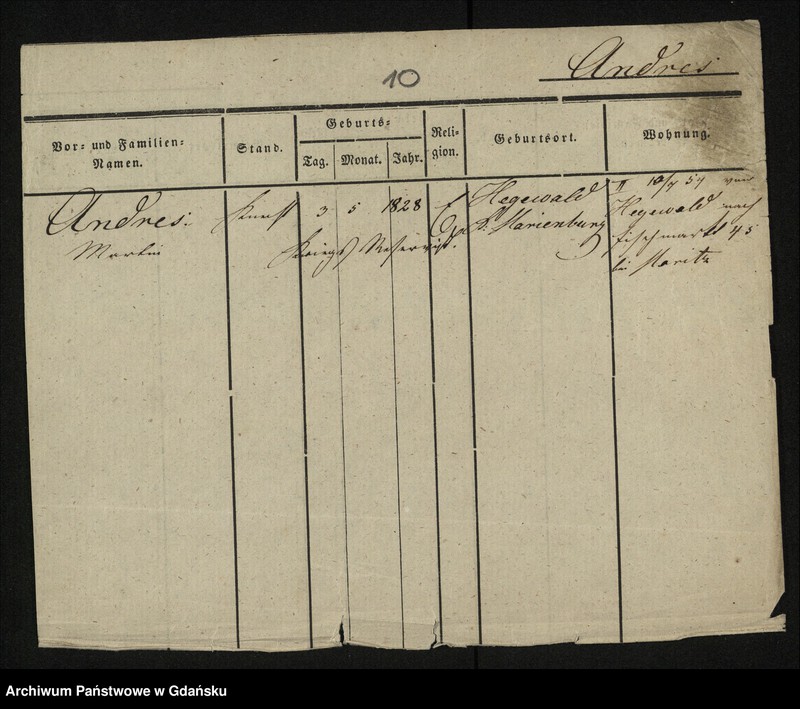 10
Andres
Vor- und Familien-
Namen.
Stand.
Geburts-
Tag.
Monat.
Jahr.
Reli-
gion.
Geburtsort.
Wohnung.
Andres
Martin
Knecht
3 5 1828
Kriegs Reservist.
Hegewald
Marienburg
II 10/7 57 von
Hegewald nach
Fischmarkt 45
bei Moritz
Archiwum Państwowe w Gdańsku